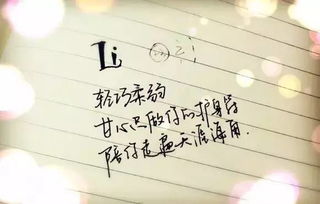 Li
轻巧柔韵
甘心只做你的护身符
陪你走遍天涯海角.